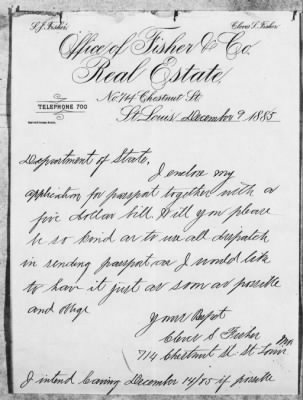 S. J. Fisher. Clovis S. Fisher
Office of Fisher & Co.
Real Estate,
No 714 Chestnut St.
TELEPHONE 700
St. Louis, December 9 1885
Department of State,
I enclose my
application for passport together with a
five dollar bill Will you please
be so kind as to use all despatch
in sending passport, as I would like
to have it just as soon as possible
and oblige
Yours Respct
Clove S Fisher
714 Chestnut St St Louis
I intend leaving December 14/85 if possible